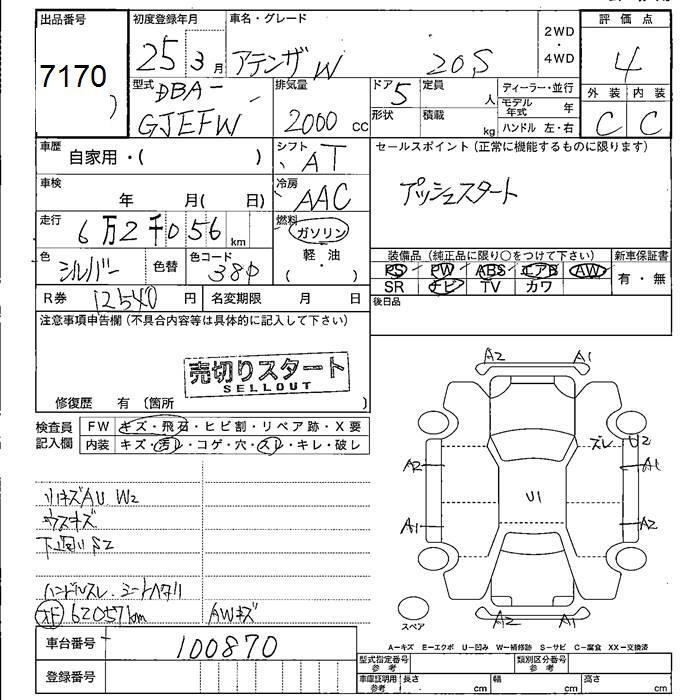 出品番号 初度登録年月 車名・グレード 2WD 評価点
7170 25 3月 アテンザ W 20S ・ 4WD 4
型式 DBA- 排気量 ドア 5 定員 人 ディーラー・並行 外装 内装
GJEFW 2000 cc 形状 積載 kg モデル年式 年 C C
ハンドル 左・右
車歴 自家用・( ) シフト AT セールスポイント (正常に機能するものに限ります)
車検 年 月( 日) 冷房 AAC プッシュスタート
走行 6万2千056 km 燃料 ガソリン
軽・油
色 シルバー 色替 色コード 38P ( ・ )
装備品 (純正品に限り○をつけて下さい) 新車保証書
PS PW ABS エアB AW 有・無
SR ナビ TV カワ
R券 12540 円 名変期限 月 日 後日品
注意事項申告欄 (不具合内容等は具体的に記入して下さい)
売切りスタート
SELLOUT
修復歴 有 〔箇所 〕
検査員 FW キズ・飛石・ヒビ割・リペア跡・X要
記入欄 内装 キズ・汚レ・コゲ・穴・スレ・キレ・破レ
A2 A1
ズレ U2
A2 A1
U1
A1 A2
A2 A1
スペア
リキズAU W2
ウスキズ
下廻りS2
ハンドルスレ・シートヘタリ
62057km AWキズ
A−キズ E−エクボ U−凹み W−補修跡 S−サビ C−腐食 XX−交換済
車台番号 100870
登録番号
型式指定番号 参考 類別区分番号 参考
車庫証明用 参考 長さ cm 幅 cm 高さ cm